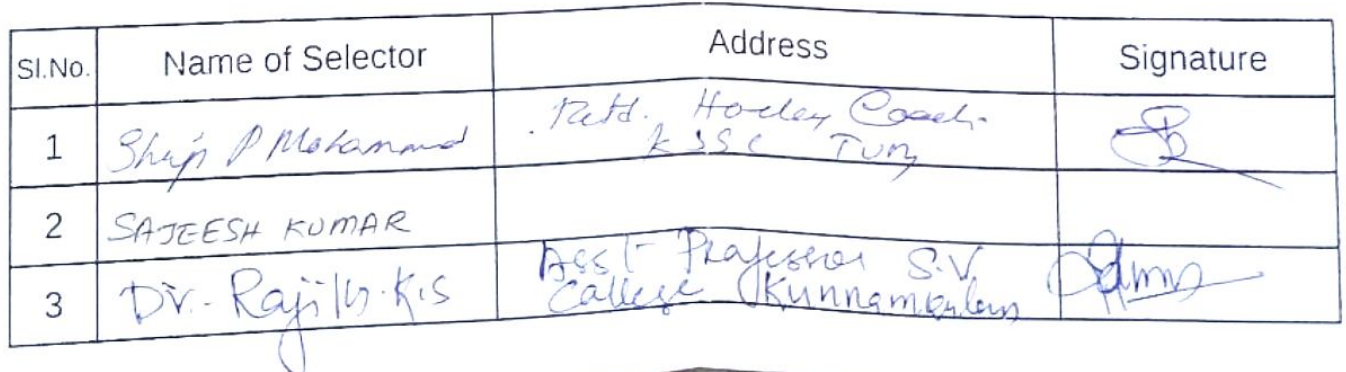 Sl.No. Name of Selector Address Signature
1 Shiji P Mohammed Retd. Hockey Coach
KSSC TVM
2 SAJEESH KUMAR
3 Dr. K.S Asst Professor S.V.
College Kunnamkulam